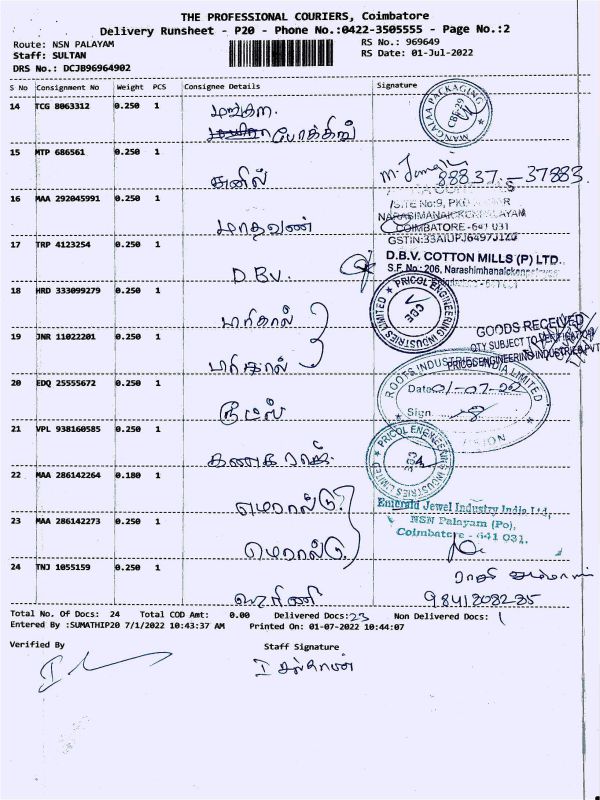 THE PROFESSIONAL COURIERS, Coimbatore
Delivery Runsheet - P20 - Phone No.:0422-3505555 - Page No.:2
Route: NSN PALAYAM
RS No.: 969649
Staff: SULTAN
RS Date: 01-Jul-2022
DRS No.: DCJB96964902
S No Consignment No Weight PCS Consignee Details Signature
14 TCG 8063312 0.250 1
MANGALAA PACKAGING
CBE-29
15 MTP 686561 0.250 1
சுனில்
88837-37883
16 MAA 292045991 0.250 1
மாதவன்
NARASIMANAICKENPALAYAM
COIMBATORE-641 031
17 TRP 4123254 0.250 1
D.B.V.
D.B.V. COTTON MILLS (P) LTD.,
S.F. No.: 206, Narashimhanaickenpalayam
18 HRD 333099279 0.250 1
PRICOL ENGINEERING INDUSTRIES LIMITED
GOODS RECEIVED
QTY SUBJECT TO VERIFICATION
PRICOL ENGINEERING INDUSTRIES PVT
19 JNR 11022201 0.250 1
20 EDQ 25555672 0.250 1
ரூட்ஸ்
ROOTS INDUSTRIES INDIA LIMITED
Date 01-07-22
Sign.
21 VPL 938160585 0.250 1
கனகராஜ்
PRICOL ENGINEERING INDUSTRIES LIMITED
22 MAA 286142264 0.180 1
எமரால்டு
Emerald Jewel Industry India Ltd,
NSN Palayam (Po),
Coimbatore - 641 031.
23 MAA 286142273 0.250 1
எமரால்டு
24 TNJ 1055159 0.250 1
ஹரிணி
9841808235
Total No. Of Docs: 24 Total COD Amt: 0.00 Delivered Docs: 23 Non Delivered Docs: 1
Entered By :SUMATHIP20 7/1/2022 10:43:37 AM Printed On: 01-07-2022 10:44:07
Verified By Staff Signature